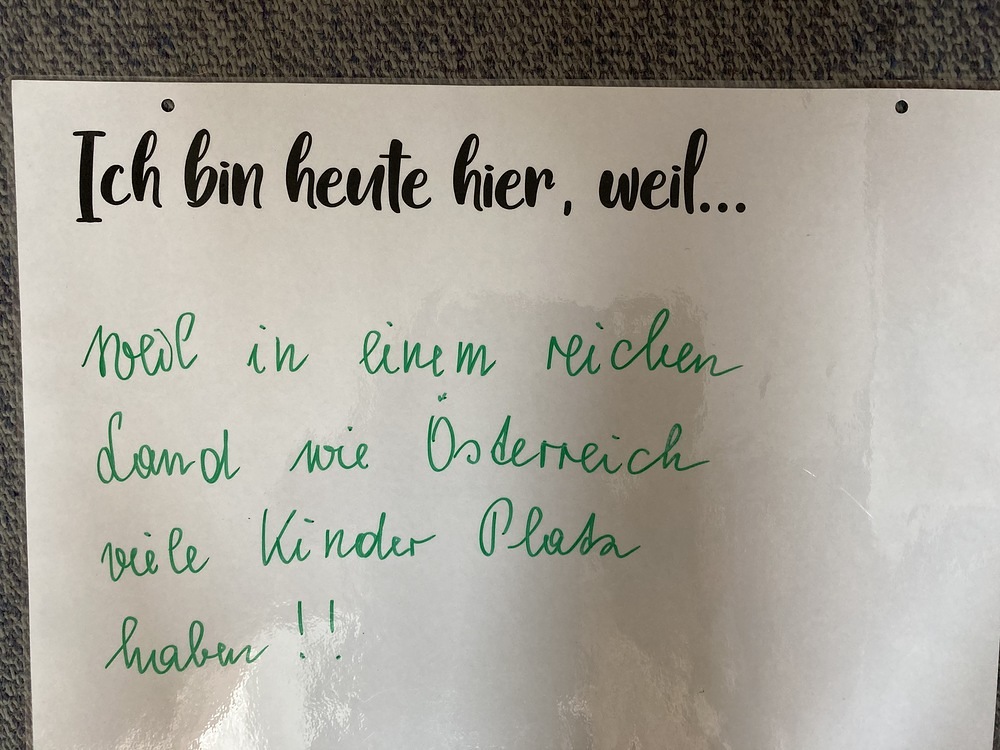 Ich bin heute hier, weil...
weil in einem reichen
Land wie Österreich
viele Kinder Platz
haben !!